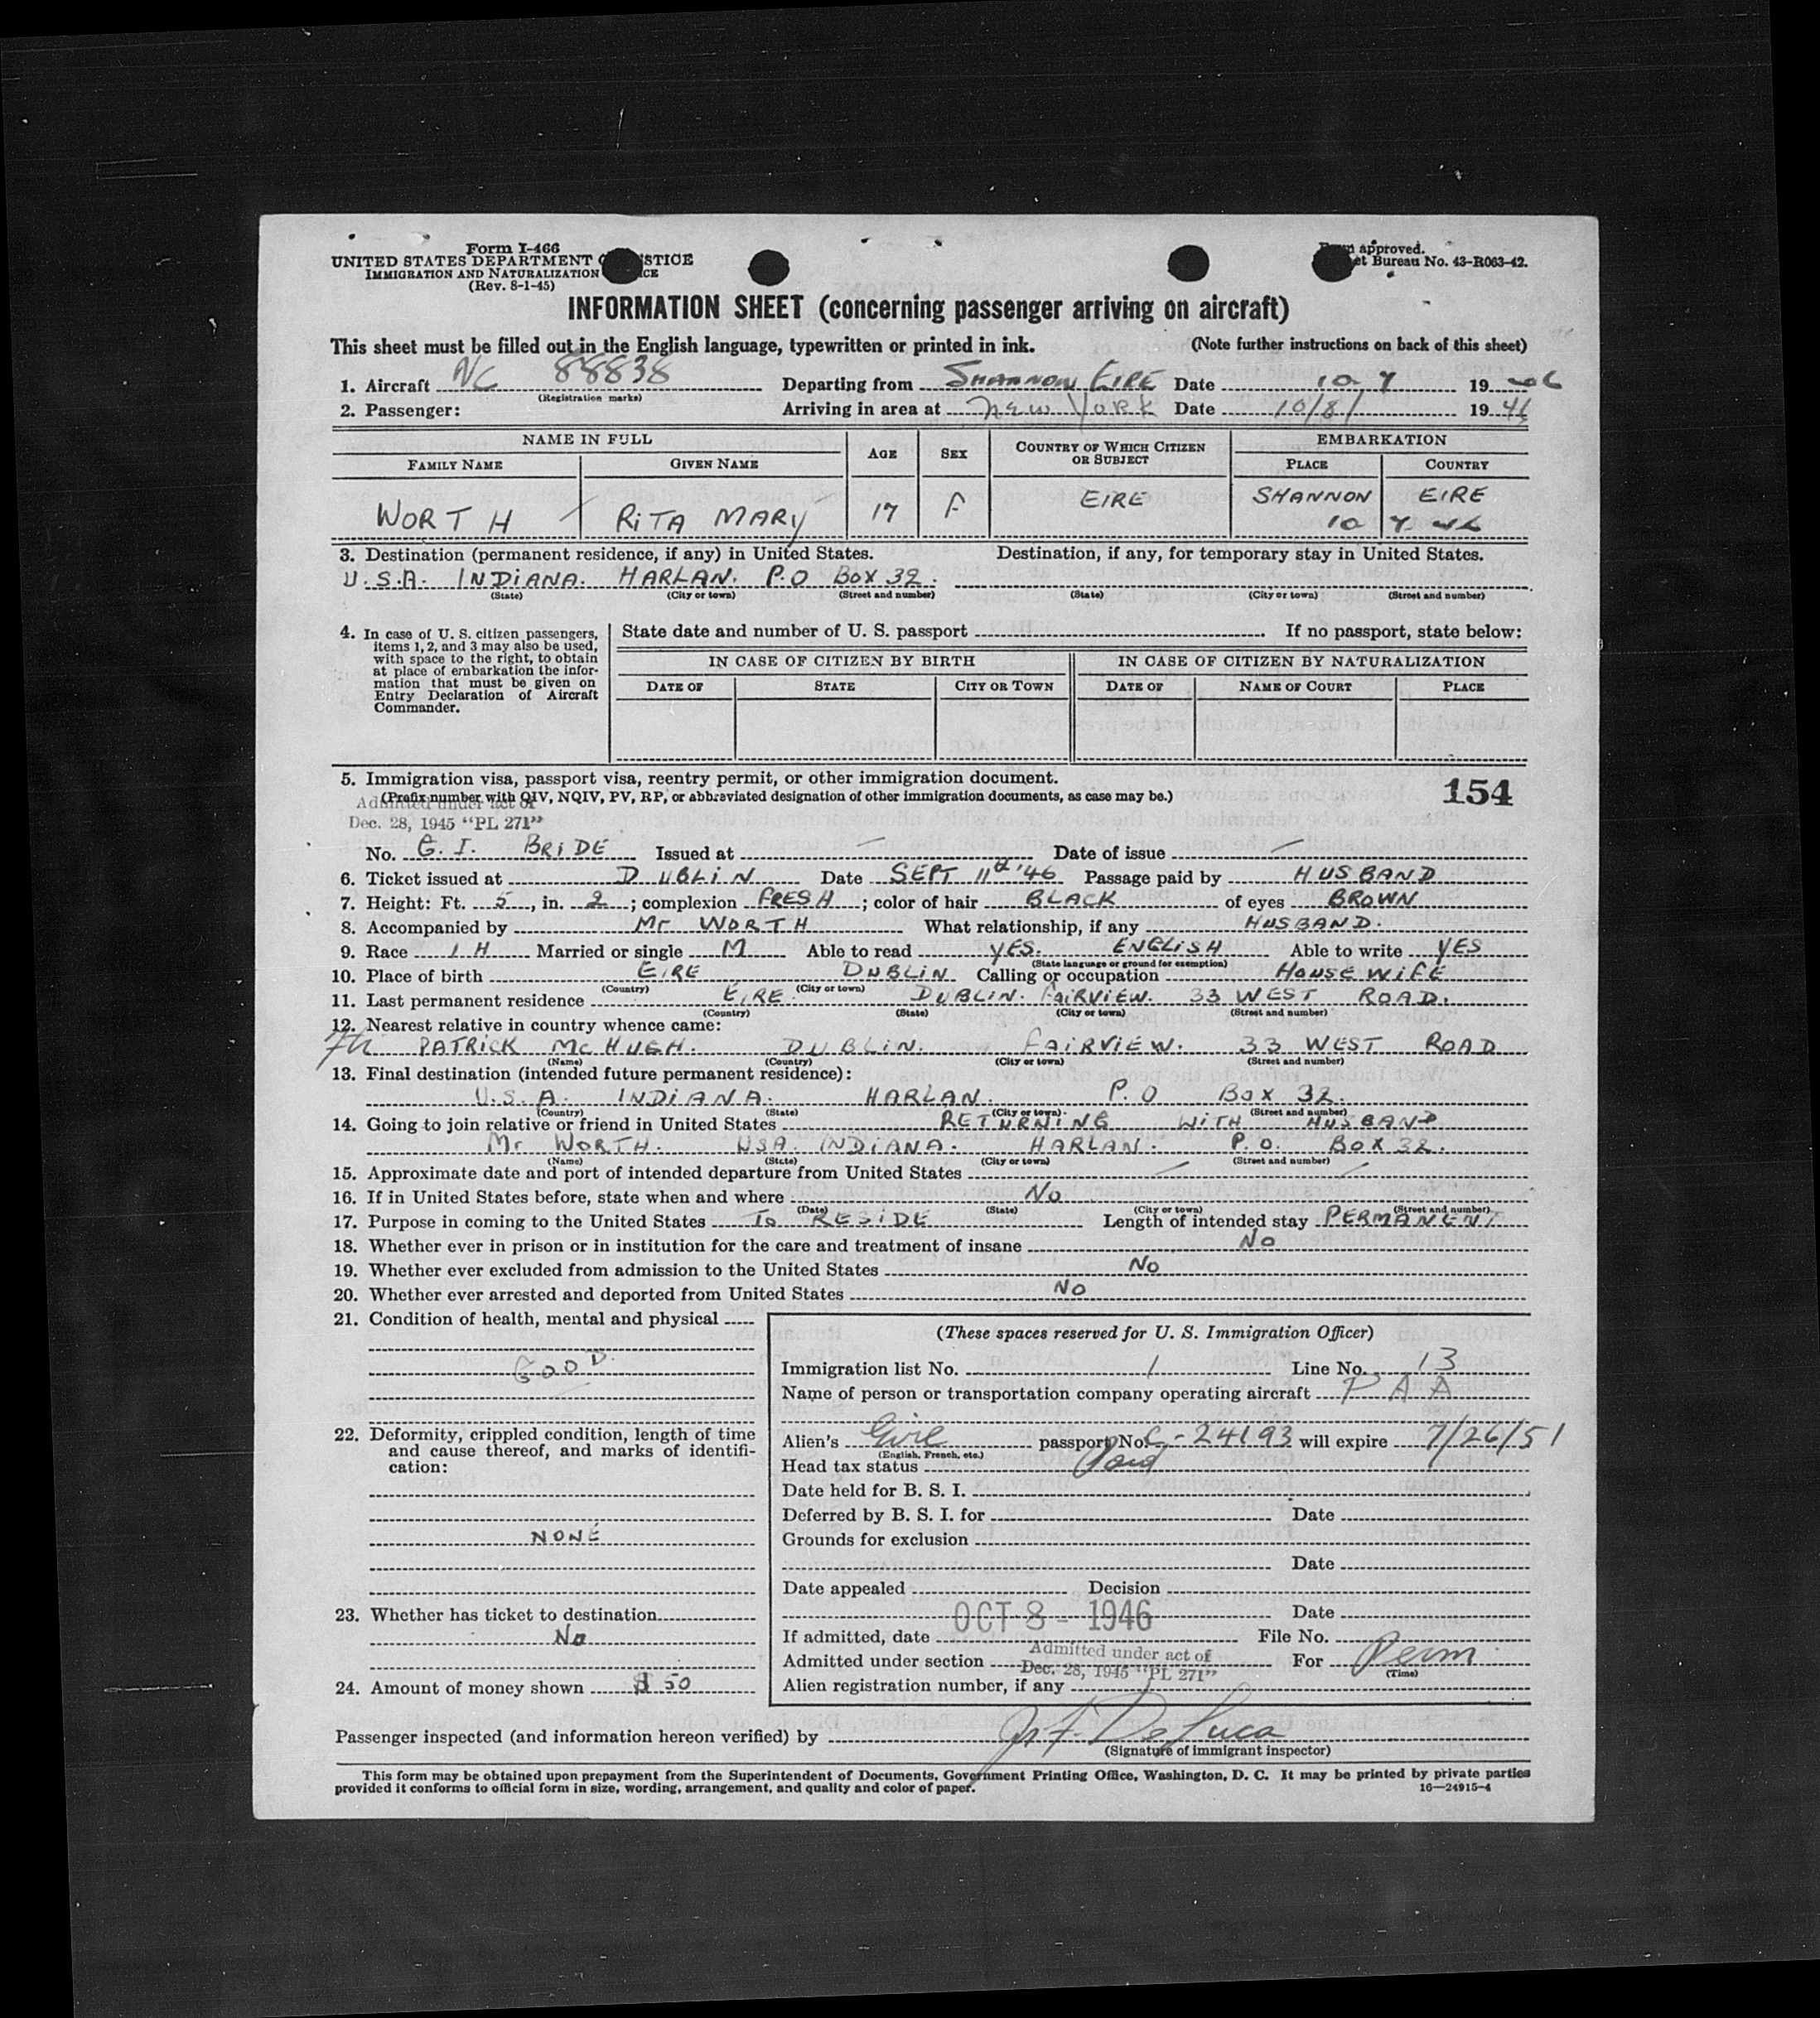 Form I-466
UNITED STATES DEPARTMENT JUSTICE
IMMIGRATION AND NATURALIZATION SERVICE
(Rev. 8-1-45)
Form approved.
Budget Bureau No. 43-R063-42.
INFORMATION SHEET (concerning passenger arriving on aircraft)
This sheet must be filled out in the English language, typewritten or printed in ink. (Note further instructions on back of this sheet)
1. Aircraft NC 88838 Departing from SHANNON EIRE Date 10 7 19 46
(Registration marks)
2. Passenger: Arriving in area at NEW YORK Date 10/8/ 19 46
NAME IN FULL AGE SEX COUNTRY OF WHICH CITIZEN OR SUBJECT EMBARKATION
FAMILY NAME GIVEN NAME PLACE COUNTRY
WORTH RITA MARY 17 F EIRE SHANNON EIRE
10 7 46
3. Destination (permanent residence, if any) in United States. Destination, if any, for temporary stay in United States.
U.S.A. INDIANA. HARLAN. P.O BOX 32.
(State) (City or town) (Street and number) (State) (City or town) (Street and number)
4. In case of U. S. citizen passengers, items 1, 2, and 3 may also be used, with space to the right, to obtain at place of embarkation the information that must be given on Entry Declaration of Aircraft Commander.
State date and number of U. S. passport If no passport, state below:
IN CASE OF CITIZEN BY BIRTH IN CASE OF CITIZEN BY NATURALIZATION
DATE OF STATE CITY OR TOWN DATE OF NAME OF COURT PLACE
5. Immigration visa, passport visa, reentry permit, or other immigration document.
(Prefix number with QIV, NQIV, PV, RP, or abbreviated designation of other immigration documents, as case may be.) 154
Admitted under act of
Dec. 28, 1945 "PL 271"
No. G. I. BRIDE Issued at — Date of issue —
6. Ticket issued at DUBLIN Date SEPT 11th '46 Passage paid by HUSBAND
7. Height: Ft. 5, in. 2; complexion FRESH; color of hair BLACK of eyes BROWN
8. Accompanied by Mr WORTH What relationship, if any HUSBAND.
9. Race IH Married or single M Able to read YES. ENGLISH Able to write YES
(State language or ground for exemption)
10. Place of birth EIRE DUBLIN Calling or occupation HOUSEWIFE
(Country) (City or town)
11. Last permanent residence EIRE. DUBLIN. FAIRVIEW. 33 WEST ROAD.
(Country) (State) (City or town) (Street and number)
12. Nearest relative in country whence came:
PATRICK McHUGH. DUBLIN. FAIRVIEW. 33 WEST ROAD
(Name) (Country) (City or town) (Street and number)
13. Final destination (intended future permanent residence):
U.S.A. INDIANA. HARLAN. P.O BOX 32.
(Country) (State) (City or town) (Street and number)
14. Going to join relative or friend in United States RETURNING WITH HUSBAND
Mr WORTH. USA. INDIANA. HARLAN. P.O. BOX 32.
(Name) (State) (City or town) (Street and number)
15. Approximate date and port of intended departure from United States —
16. If in United States before, state when and where No
(Date) (State) (City or town) (Street and number)
17. Purpose in coming to the United States To RESIDE Length of intended stay PERMANENT
18. Whether ever in prison or in institution for the care and treatment of insane No
19. Whether ever excluded from admission to the United States No
20. Whether ever arrested and deported from United States No
21. Condition of health, mental and physical
GOOD.
22. Deformity, crippled condition, length of time and cause thereof, and marks of identification:
NONE
23. Whether has ticket to destination
No
24. Amount of money shown $ 50
(These spaces reserved for U. S. Immigration Officer)
Immigration list No. 1 Line No. 13
Name of person or transportation company operating aircraft P A A
Alien's Eire passport No. C-24193 will expire 7/26/51
(English, French, etc.)
Head tax status Paid
Date held for B. S. I.
Deferred by B. S. I. for Date
Grounds for exclusion
Date
Date appealed Decision
Date
If admitted, date OCT 8 - 1946 File No.
Admitted under section Admitted under act of Dec. 28, 1945 "PL 271" For Perm
(Time)
Alien registration number, if any
Passenger inspected (and information hereon verified) by De Luca
(Signature of immigrant inspector)
This form may be obtained upon prepayment from the Superintendent of Documents, Government Printing Office, Washington, D. C. It may be printed by private parties
provided it conforms to official form in size, wording, arrangement, and quality and color of paper. 16—24915-4